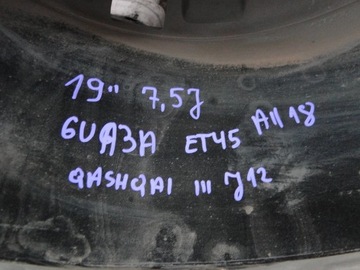 19" 7,5J
6UA3A ET45 A1118
QASHQAI III J12